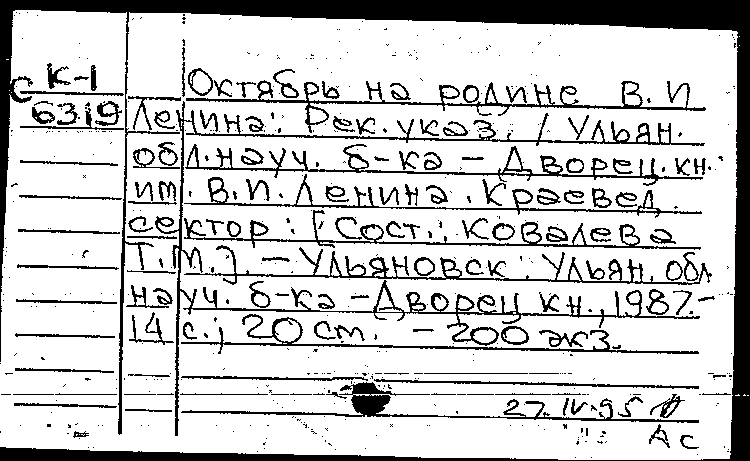 К-1
С 6319
Октябрь на родине В. И
Ленина: Рек. указ. / Ульян.
обл. науч. б-ка - Дворец. кн.
им. В. И. Ленина. Краевед.
сектор: [Сост.: Ковалева
Т. М.]. - Ульяновск: Ульян. обл
науч. б-ка - Дворец кн., 1987. -
14 с.; 20 см. - 200 экз.
27. IV. 95
Ас